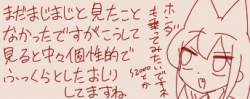 まだまじまじと見たこと
なかったですがこうして
見ると中々個性的で
ふっくらとしたましり
してますね
ホンダ
も乗ってみたいですネ
S2000とか